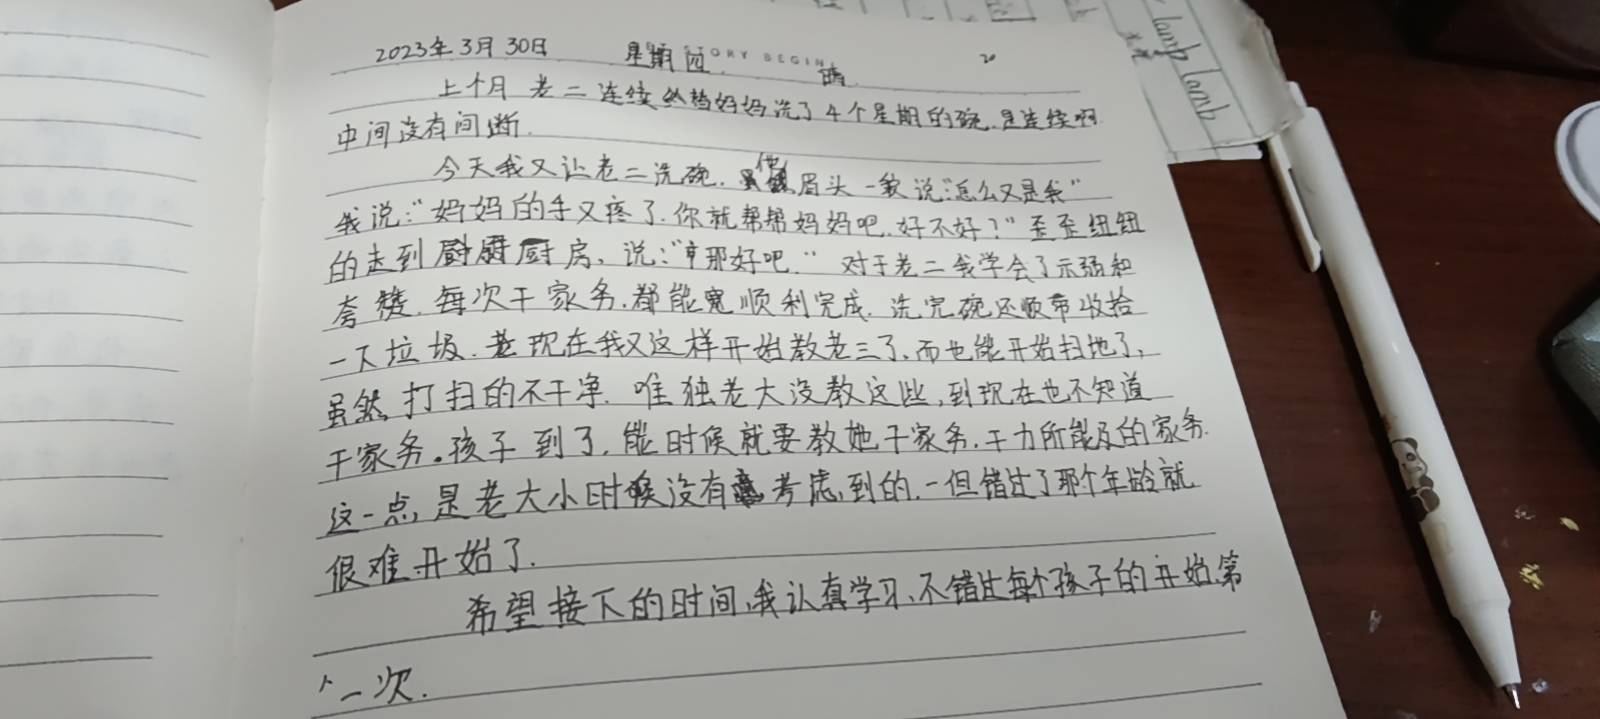 2023年3月30日 星期四 STORY BEGIN 晴 20
上个月 老二连续给妈妈洗了4个星期的碗,是连续啊
中间没有间断.
今天我又让老二洗碗. 他眉头一皱说:"怎么又是我"
我说:"妈妈的手又疼了.你就帮帮妈妈吧.好不好?"歪歪纽纽
的走到厨房、说:"那好吧." 对于老二我学会了示弱和
夸赞.每次干家务.都能顺利完成.洗完碗还顺带收拾
一下垃圾.现在我又这样开始教老三了、而也能开始扫地了,
虽然,打扫的不干净. 唯独老大没教这些,到现在也不知道
干家务。孩子到了.能时候就要教她干家务.干力所能及的家务.
这一点,是老大小时候没有考虑,到的.一但错过了那个年龄就
很难开始了.
希望接下的时间,我认真学习、不错过每个孩子的开始.第
一次.
lamb lamb